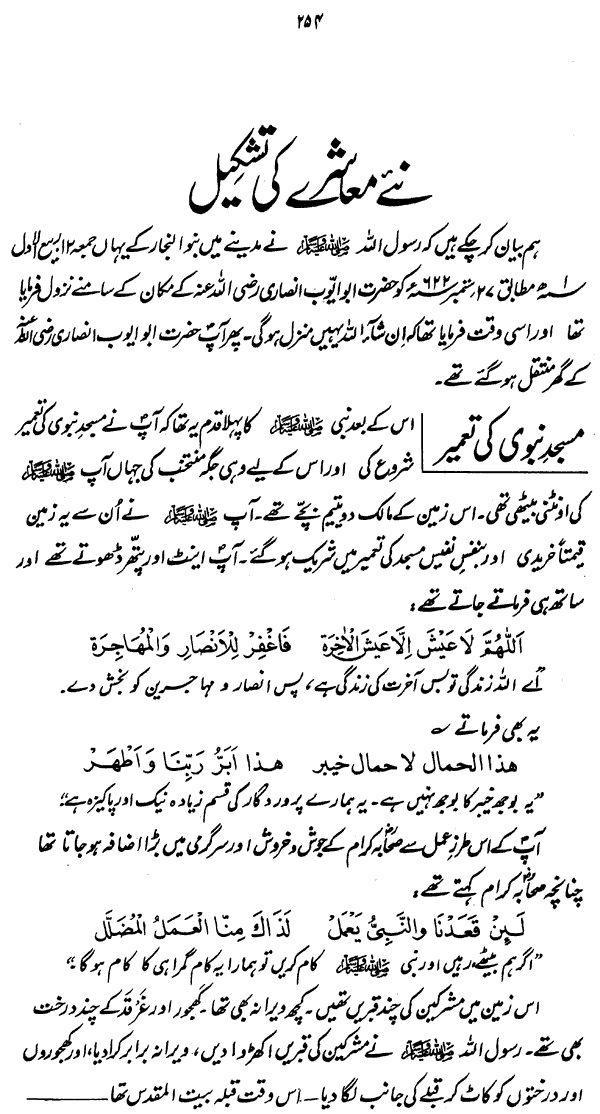 ۲۵۴
نئے معاشرے کی تشکیل
ہم بیان کر چکے ہیں کہ رسول اللہ ﷺ نے مدینے میں بنو النجار کے یہاں جمعہ ۱۲ ربیع الاول
۱ھ مطابق ۲۷ ستمبر ۶۲۲ء کو حضرت ابو ایّوب انصاری رضی اللہ عنہ کے مکان کے سامنے نزول فرمایا
تھا اور اسی وقت فرمایا تھا کہ اِن شاءَ اللہ یہیں منزل ہوگی۔ پھر آپؐ حضرت ابو ایوب انصاری رضی اللہ عنہ
کے گھر منتقل ہو گئے تھے۔
مسجدِ نبوی کی تعمیر
اس کے بعد نبی ﷺ کا پہلا قدم یہ تھا کہ آپؐ نے مسجد نبوی کی تعمیر
شروع کی اور اس کے لیے وہی جگہ منتخب کی جہاں آپ ﷺ
کی اونٹنی بیٹھی تھی۔ اس زمین کے مالک دو یتیم بچے تھے۔ آپ ﷺ نے اُن سے یہ زمین
قیمتاً خریدی اور بنفسِ نفیس مسجد کی تعمیر میں شریک ہو گئے۔ آپؐ اینٹ اور پتھر ڈھوتے تھے اور
ساتھ ہی فرماتے جاتے تھے :
اَللّٰهُمَّ لَا عَيْشَ اِلَّا عَيْشَ الْاٰخِرَة فَاغْفِرْ لِلْاَنْصَارِ وَالْمُهَاجِرَة
”اے اللہ زندگی تو بس آخرت کی زندگی ہے، پس انصار و مہاجرین کو بخش دے۔
یہ بھی فرماتے ؎
هذا الحمال لا حمال خيبر هذا اَبَرُّ رَبَّنَا وَاَطْهَر
”یہ بوجھ خیبر کا بوجھ نہیں ہے۔ یہ ہمارے پروردگار کی قسم زیادہ نیک اور پاکیزہ ہے“
آپؐ کے اس طرزِ عمل سے صحابہؓ کرام کے جوش و خروش اور سرگرمی میں بڑا اضافہ ہو جاتا تھا
چنانچہ صحابہؓ کرام کہتے تھے :
لَئِنْ قَعَدْنَا والنَّبِيُّ يَعْمَلُ لَذَاكَ مِنَّا الْعَمَلُ الْمُضَلَّل
”اگر ہم بیٹھے رہیں اور نبی ﷺ کام کریں تو ہمارا یہ کام گمراہی کا کام ہو گا۔“
اس زمین میں مشرکین کی چند قبریں تھیں۔ کچھ ویرانہ بھی تھا۔ کھجور اور غَرْقَد کے چند درخت
بھی تھے۔ رسول اللہ ﷺ نے مشرکین کی قبریں اکھڑوا دیں، ویرانہ برابر کرا دیا، اور کھجوروں
اور درختوں کو کاٹ کر قبلے کی جانب لگا دیا — اس وقت قبلہ بیت المقدس تھا —